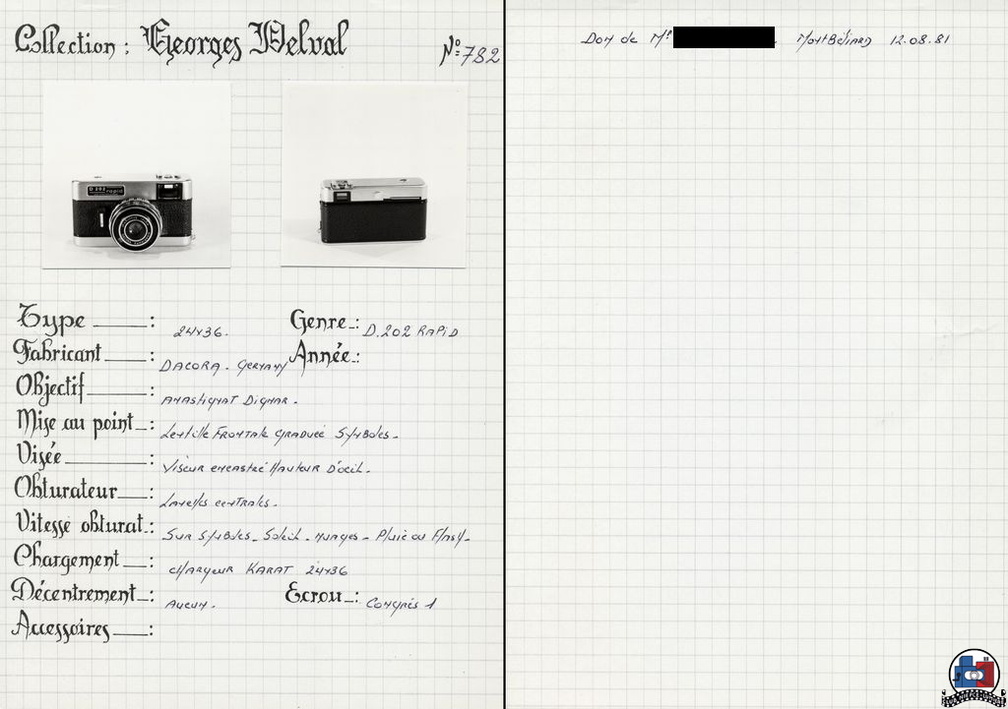 Collection : Georges Delval
N°: 782
D 202 rapid
Type : 24x36.
Genre : D.202 RAPID
Fabricant : DACORA. Germany
Année :
Objectif : Anastigmat Dignar.
Mise au point : Lentille Frontale Graduée Symboles.
Visée : Viseur encastré Hauteur D'oeil.
Obturateur : Lamelles centrales.
Vitesse obturat : Sur Symboles. Soleil. nuages. Pluie ou Flash.
Chargement : chargeur KARAT 24x36
Décentrement : Aucun.
Ecrou : Congrès 1
Accessoires :
Don de Mr . MontBéliard 12.08.81